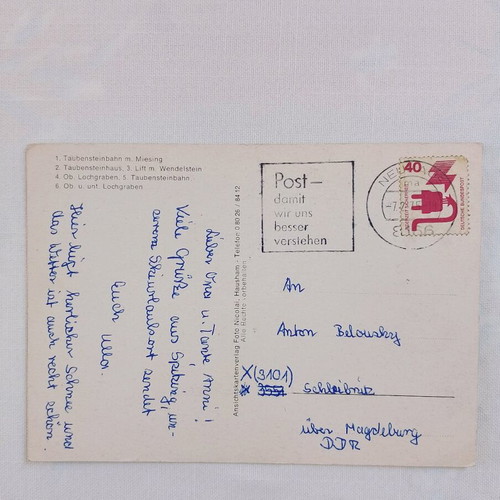 1. Taubensteinbahn m. Miesing
2. Taubensteinhaus, 3. Lift m. Wendelstein
4. Ob. Lochgraben, 5. Taubensteinbahn
6. Ob. u. unt. Lochgraben
Post–
damit
wir uns
besser
verstehen
40
DEUTSCHE BUNDESPOST
Ansichtskartenverlag Foto Nicolai, Hausham - Telefon 0 80 26 / 84 12
Alle Rechte vorbehalten
Lieber Opa u. Tante
Viele Grüße aus Spitzing, un-
serem Skiurlaubsort sendet
Euch
Hier liegt herrlicher Schnee und
das Wetter ist auch recht schön.
An
Anton Belousky
X (3101)
3551 Schleibnitz
über Magdeburg
DDR